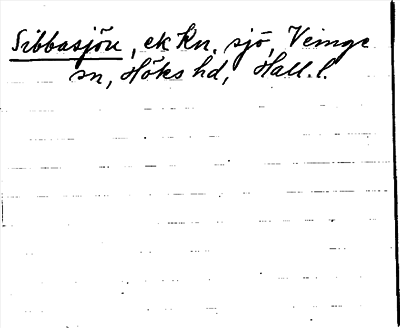 Sibbasjön, ek kn. sjö, Veinge
sn, Höks hd, Hall. l.